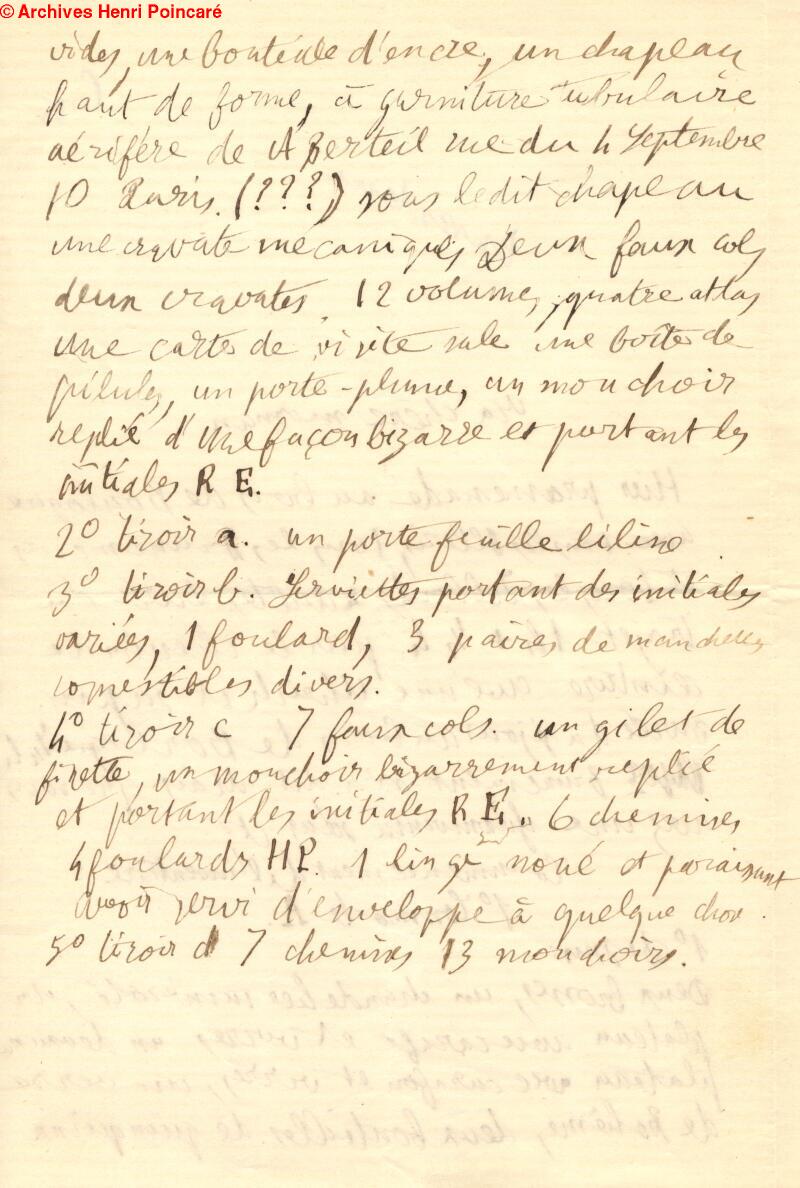 © Archives Henri Poincaré
vides, une bouteille d'encre, un chapeau
haut de forme, à garniture tubulaire
aérifère de A Berteil rue du 4 Septembre
10 Paris. (???) sous ledit chapeau
une cravate mécanique, Deux faux cols
deux cravates. 12 volumes, quatre atlas
une carte de visite sale une boîte de
pilules, un porte-plume, un mouchoir
replié d'une façon bizarre et portant les
initiales R E.
2° tiroir a. un porte feuille
3° tiroir b. Serviettes portant des initiales
variées, 1 foulard, 3 paires de manchettes
comestibles divers.
4° tiroir c 7 faux cols. un gilet de
, un mouchoir bizarrement replié
et portant les initiales R E. 6 chemises
4 foulards HP. 1 linge noué et paraissant
avoir servi d'enveloppe à quelque chose.
5° tiroir d 7 chemises 13 mouchoirs.